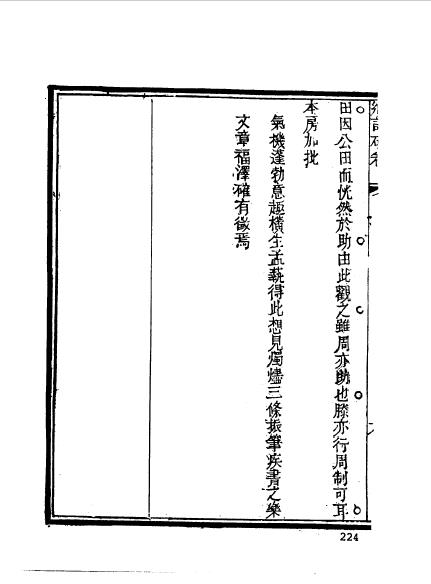 鄉試硃卷
田因公田而恍然於助由此觀之雖周亦助也滕亦行周制可耳
本房加批
氣機蓬勃意趣橫生孟藝得此想見燭燼三條振筆疾書之樂
文章福澤確有徵焉
224